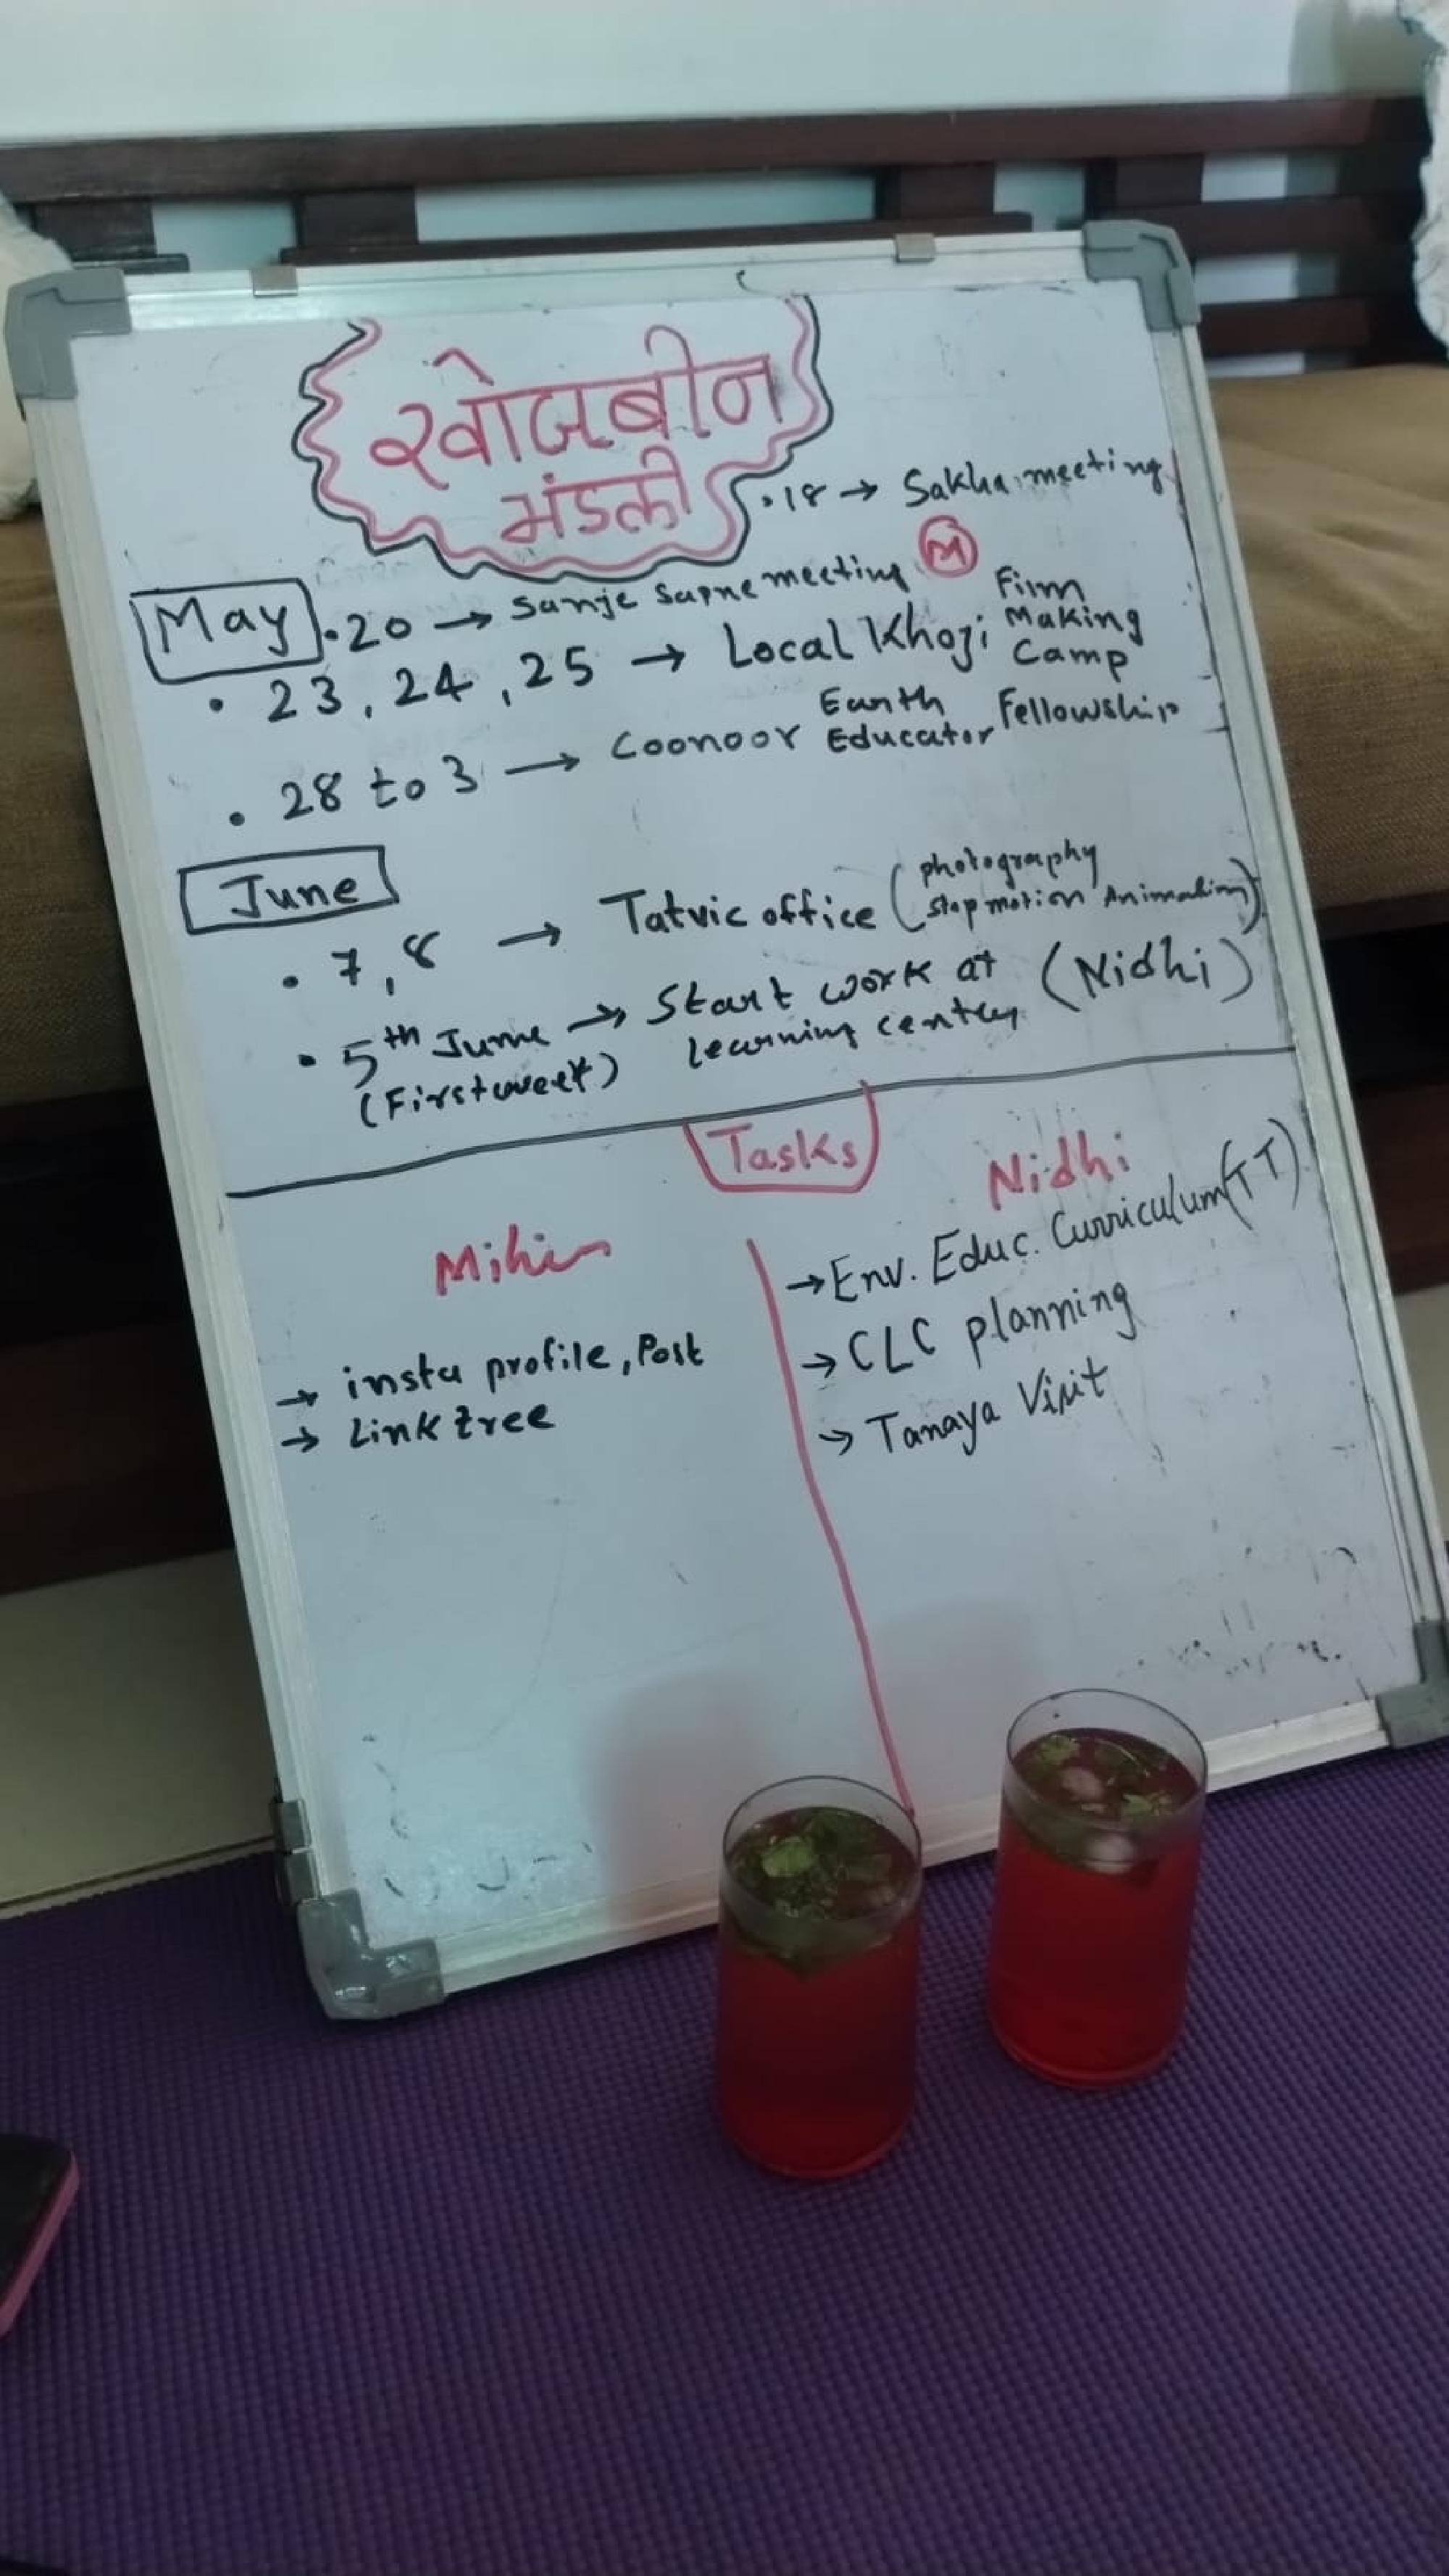 खोजबीन
मंडली
.18 → Sakha meeting
May
.20 → Sanje Sapne meeting (M)
• 23, 24, 25 → Local Khoji Firm Making Camp
• 28 to 3 → Coonoor Earth Educator Fellowship
June
• 7, 8 → Tatvic office (photography stop motion Animation)
• 5th June → Start work at (Nidhi)
(First week) learning center
Tasks
Mihir
→ insta profile, Post
→ Linktree
Nidhi
→ Env. Educ. Curriculum (TT)
→ CLC planning
→ Tanaya Visit